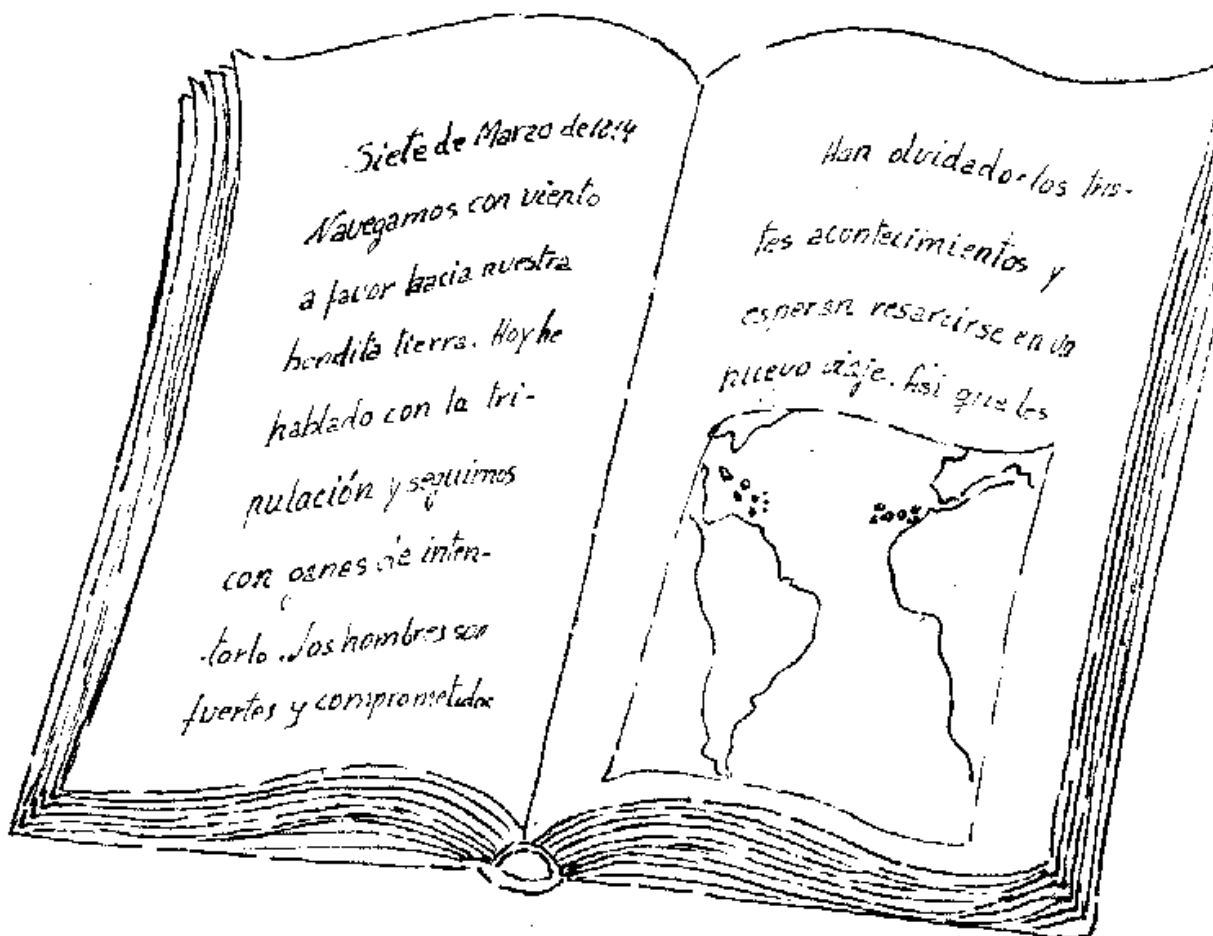 Siete de Marzo de 1814
Navegamos con viento
a favor hacia nuestra
bendita tierra. Hoy he
hablado con la tri-
pulación y seguimos
con ganas de inten-
tarlo. Los hombres son
fuertes y comprometidos
Han olvidado los tris-
tes acontecimientos y
esperan resarcirse en un
nuevo viaje. Así que les